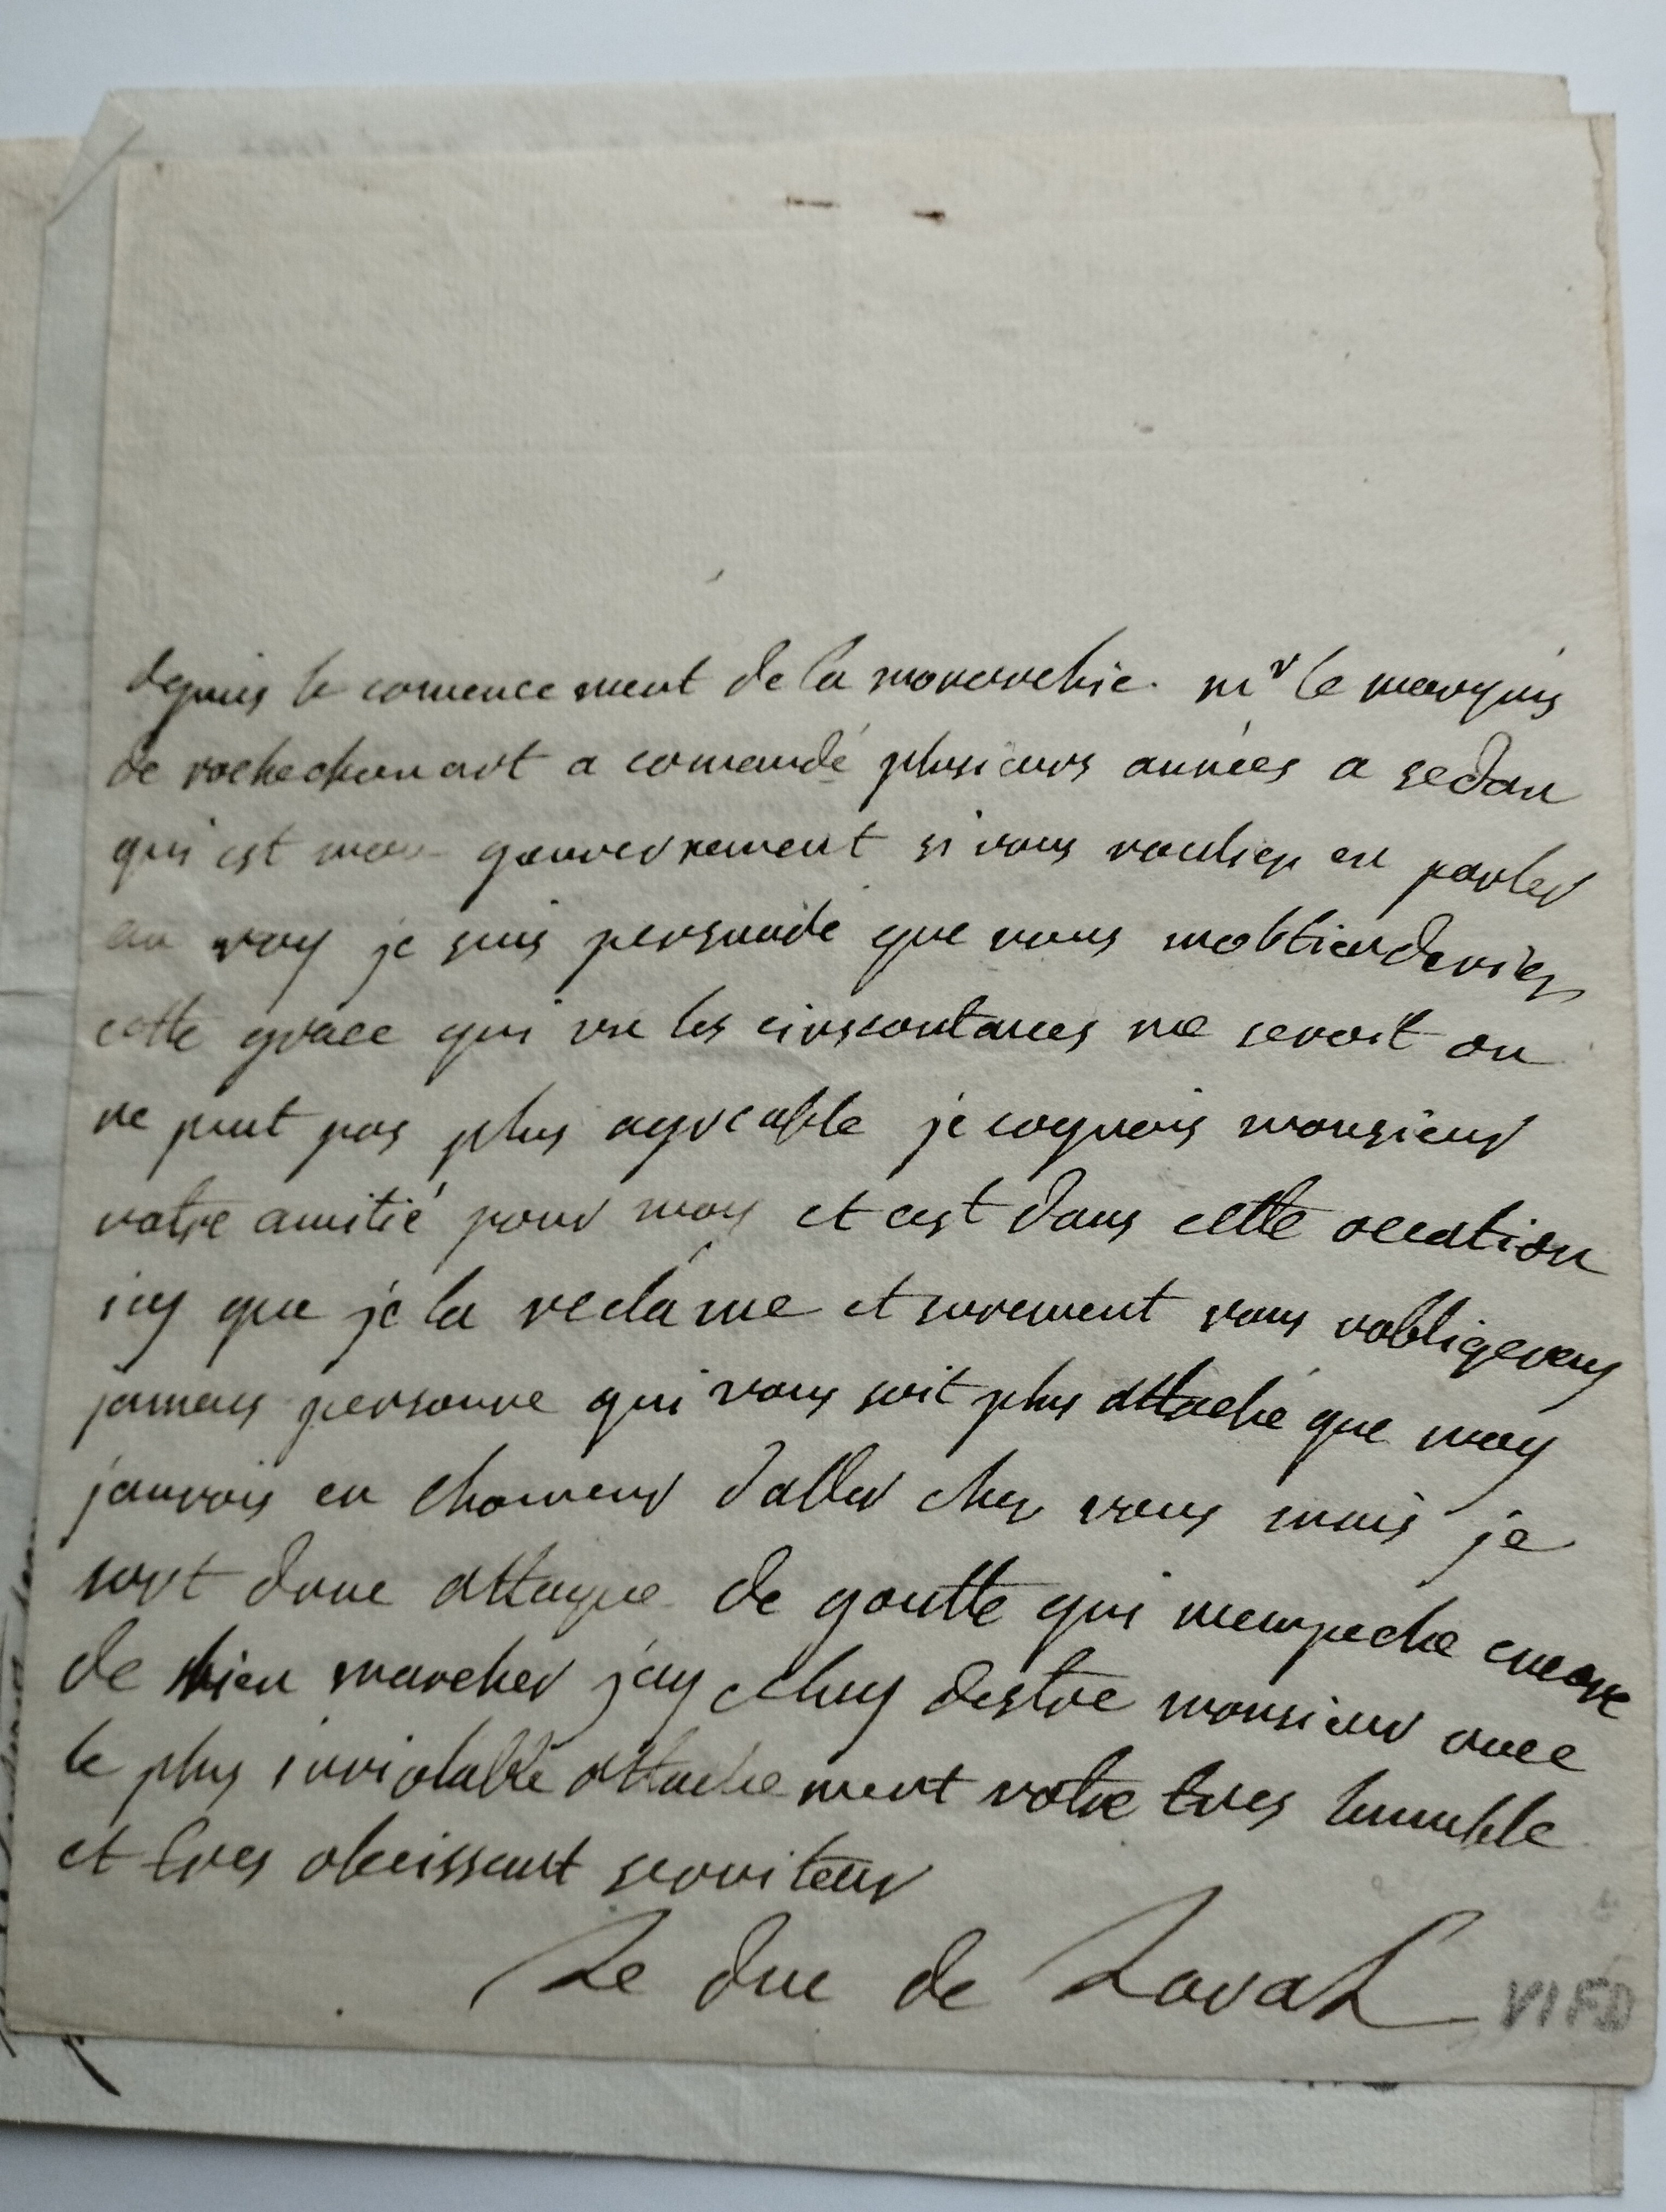 depuis le comencement de la monarchie. mr le marquis
de rochechouart a comandé plusieurs années a sedan
qui est mon gouvernement si vous vouliez en parler
au roy je suis persuadé que vous mobtienderiez
cette grace qui vu les cirscontances me seroit on
ne peut pas plus agreable je cognois monsieur
votre amitié pour moy et cest dans cette occation
icy que je la reclame et surement vous nobligerez
jamais personne qui vous soit plus attaché que moy
jaurois eu lhonneur daller chez vous mais je
sort dune attaque de goutte qui mempeche encore
de bien marcher jay lhonneur destre monsieur avec
le plus inviolable attachement votre tres humble
et tres obeissant serviteur
Le duc de Laval
VIFD